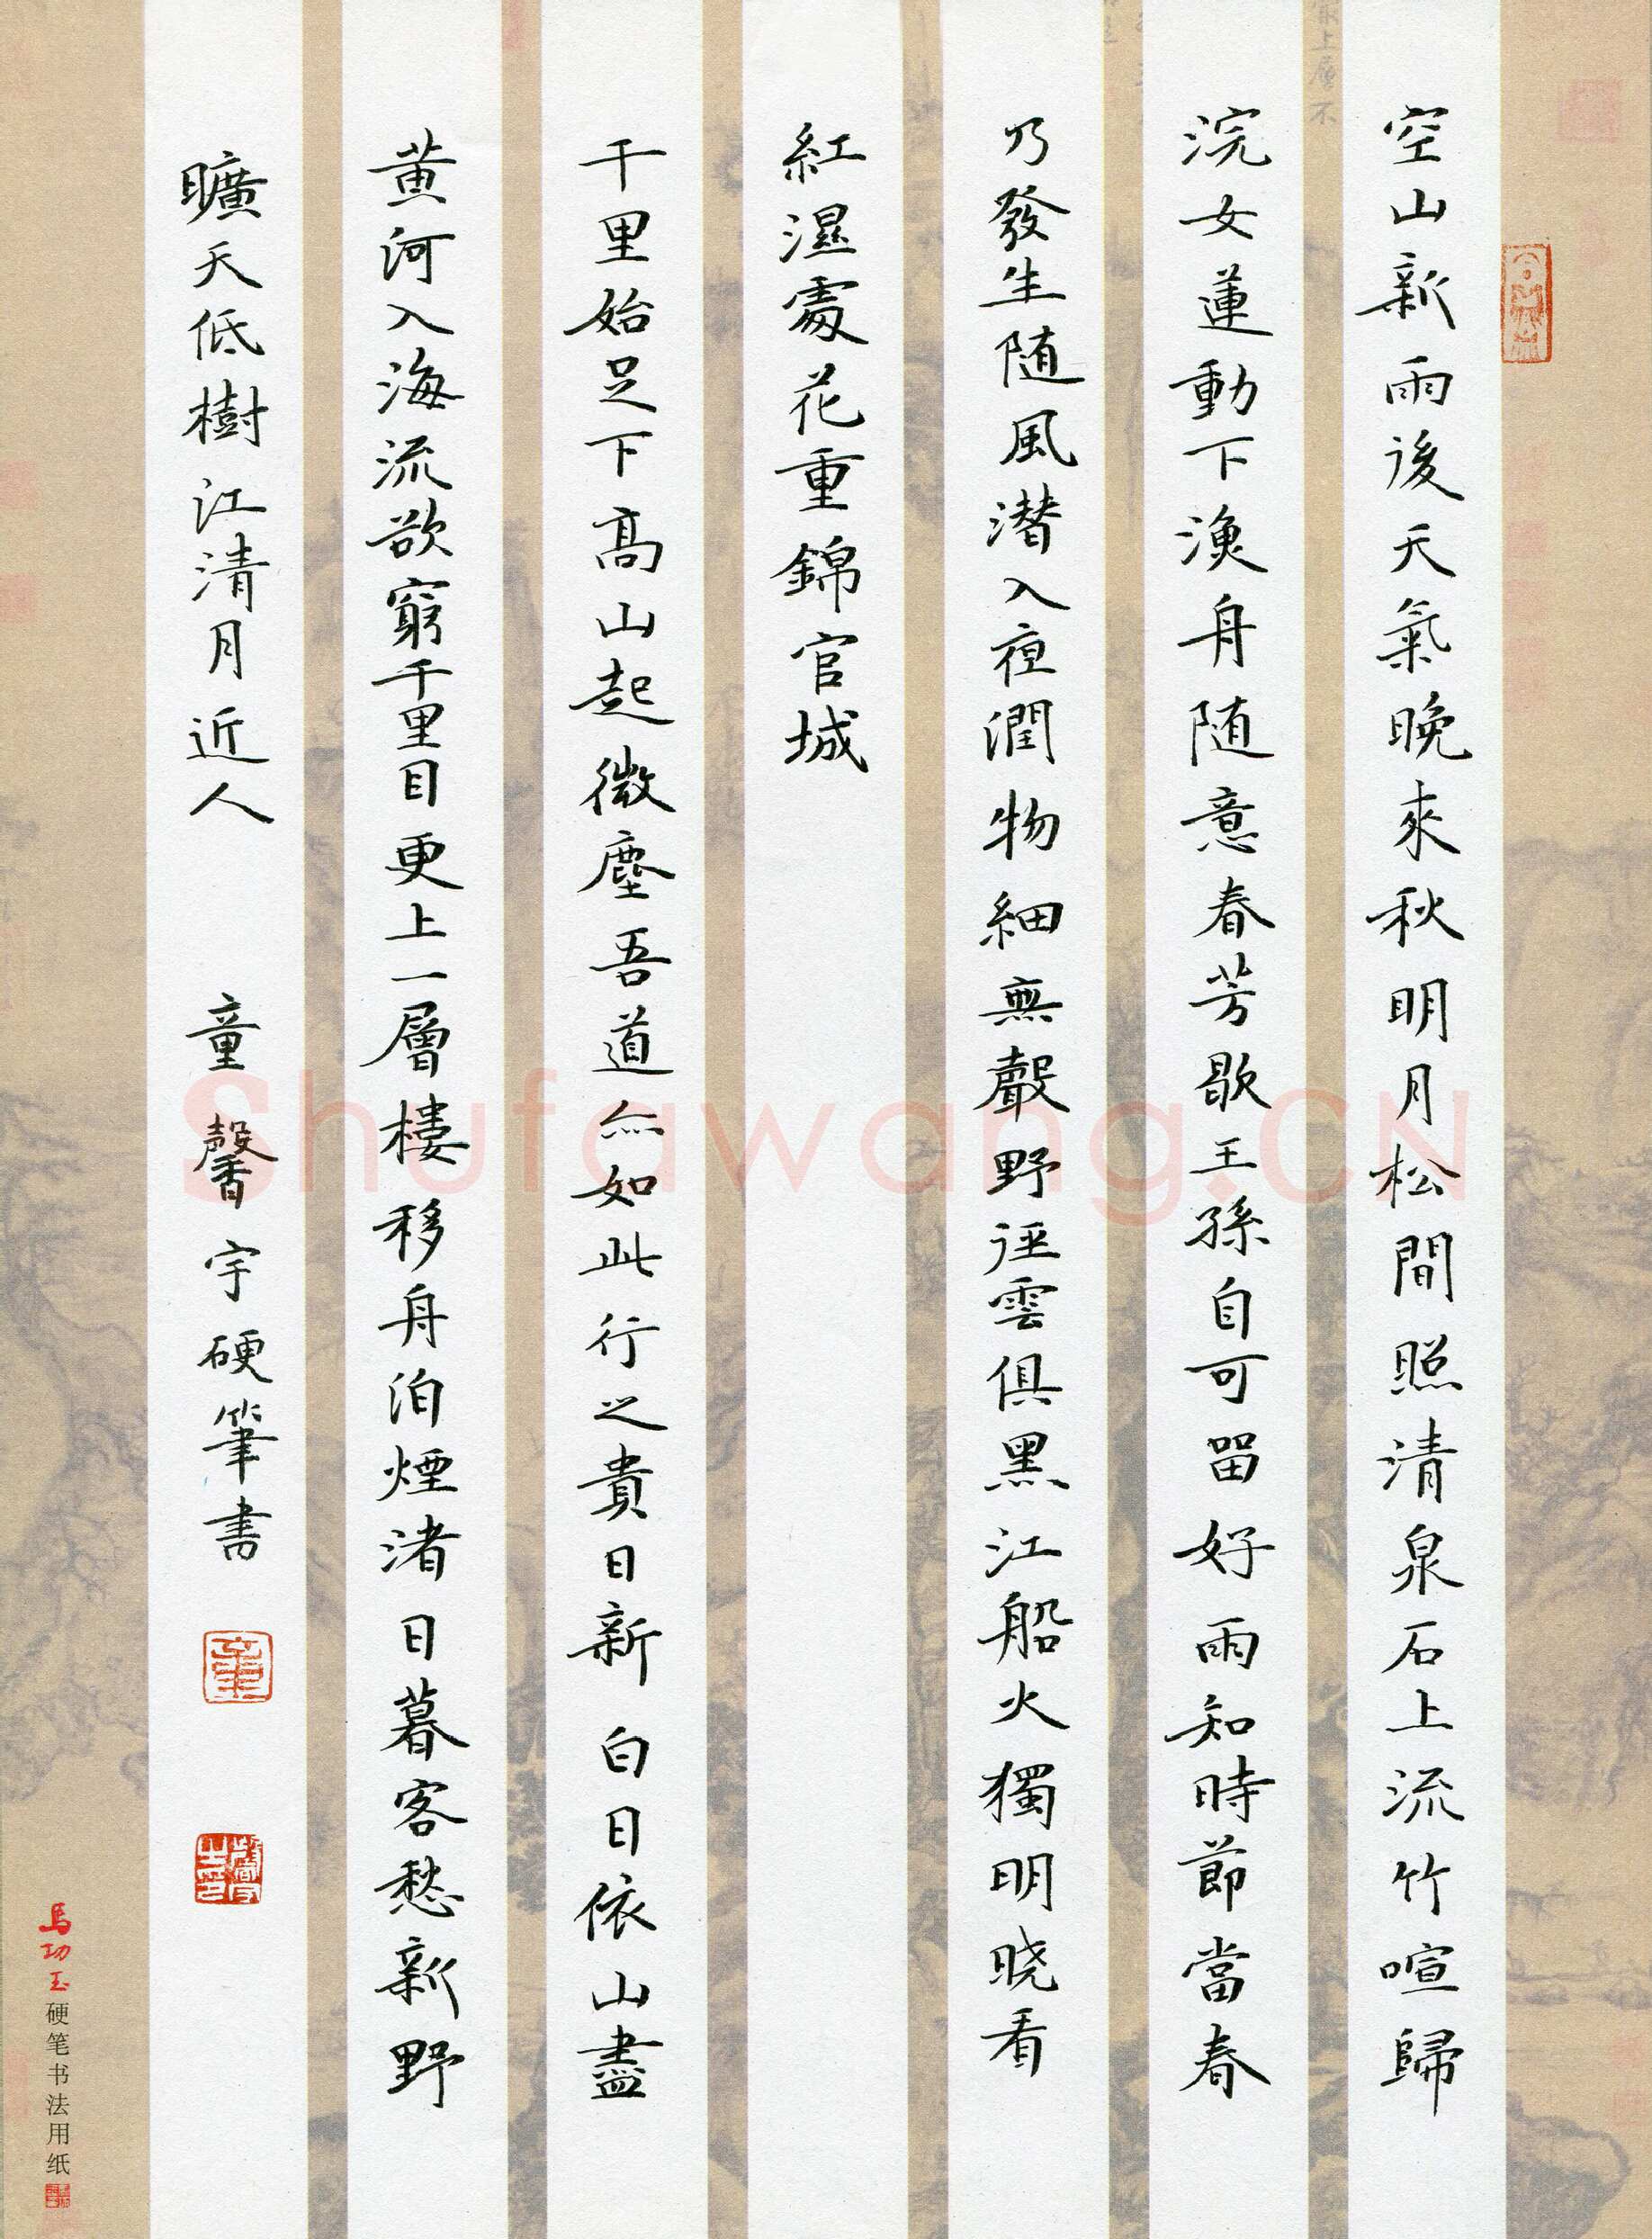 空山新雨後天氣晚來秋明月松間照清泉石上流竹喧歸
浣女蓮動下漁舟随意春芳歇王孫自可留好雨知時節當春
乃發生随風潜入夜潤物細無聲野徑雲俱黑江船火獨明晓看
紅濕處花重錦官城
千里始足下高山起微塵吾道亦如此行之貴日新白日依山盡
黄河入海流欲窮千里目更上一層樓移舟泊煙渚日暮客愁新野
曠天低樹江清月近人 童馨宇硬筆書
童
馬功玉硬笔书法用纸
Shufawang.CN